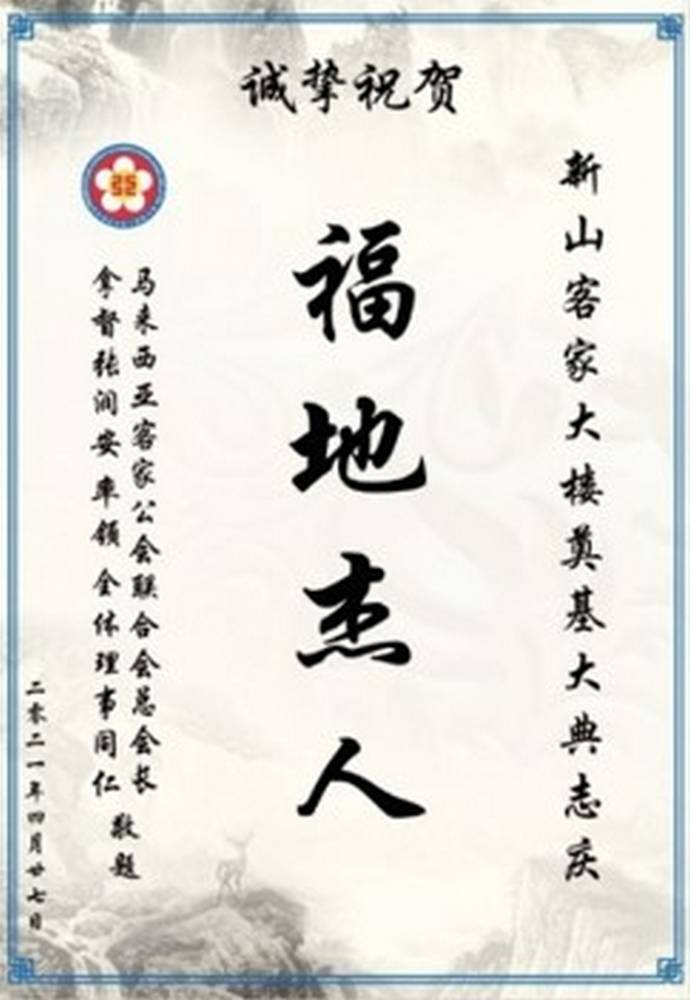 诚挚祝贺
新山客家大楼奠基大典志庆
福地杰人
马来西亚客家公会联合会总会长
拿督张润安率领全体理事同仁
敬题
二零二一年四月廿七日